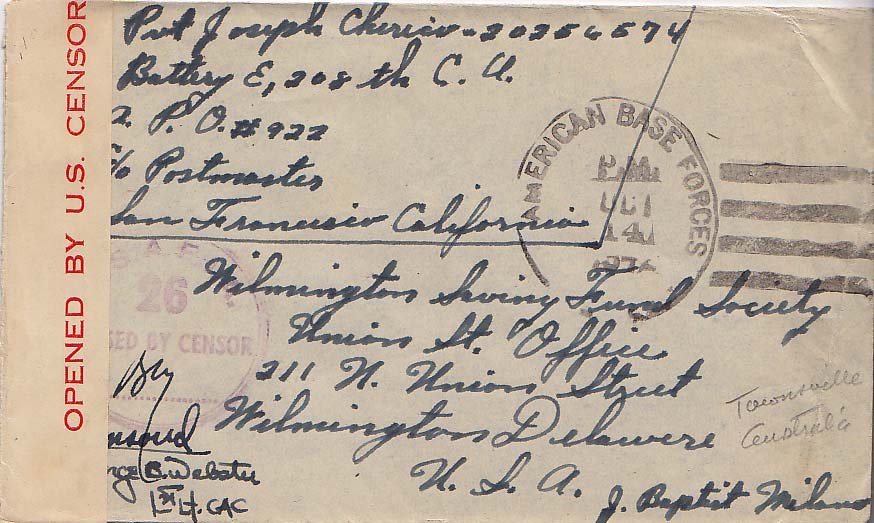 OPENED BY U.S. CENSOR
Pvt Joseph Cherico - 20256574
Battery E, 208 th C. A.
A. P. O. #922
c/o Postmaster
San Francisco California
AMERICAN BASE FORCES
P.M.
OCT
14
26
SED BY CENSOR
By
Wilmington Saving Fund Society
Union St. Office
211 N. Union Street
Wilmington Delawere
U. S. A.
J. Baptist Milano
Townsville
Australia
B. Webster
1st Lt. CAC